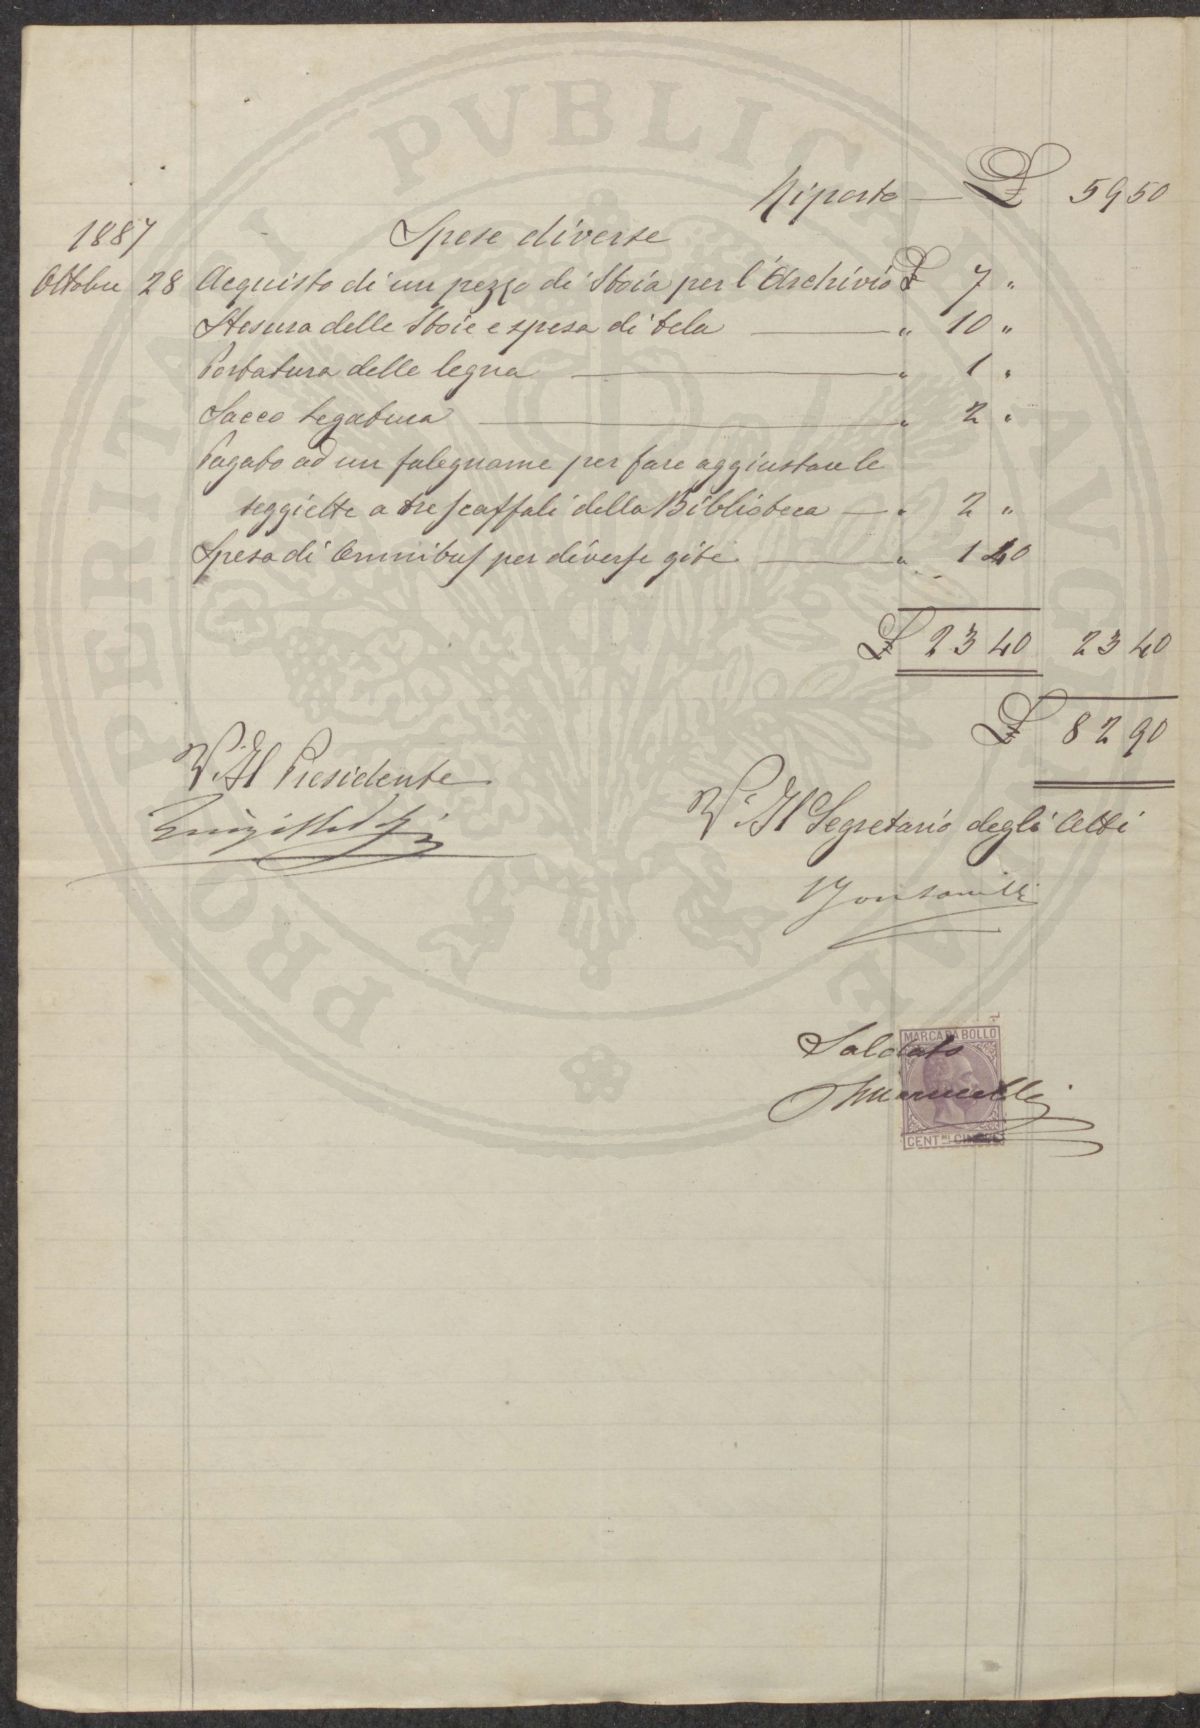 Riporto — £ 59 50
1887 Spese diverse
Ottobre 28 Acquisto di un pezzo di Stoia per l'Archivio £ 7 "
Stesura delle Stoie e spesa di tela — " 10 "
Portatura delle legna — " 1 "
Sacco segatura — " 2 "
Pagato ad un falegname per fare aggiustare le
seggiette a tre scaffali della Biblioteca — " 2 "
Spesa di Omnibus per diverse gite — " 1 40
£ 23 40 23 40
£ 82 90
V. Il Presidente
V. Il Segretario degli Atti
Saldato
MARCA DA BOLLO
CENT.MI CINQUE
PROPERITATI PVBLICAE AVGENDAE